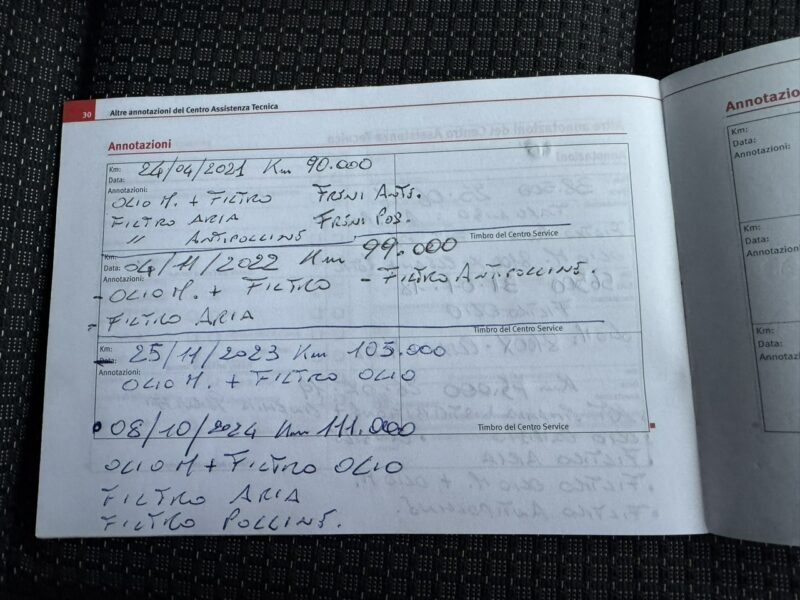 30 Altre annotazioni del Centro Assistenza Tecnica
Annotazioni
Km: 24/04/2021 Km 90.000
Data:
Annotazioni:
OLIO M. + FILTRO FRENI ANT.
FILTRO ARIA FRENI POS.
" ANTIPOLLINE
Timbro del Centro Service
Km:
Data: 04/11/2022 Km 99.000
Annotazioni:
- OLIO M. + FILTRO - FILTRO ANTIPOLLINE.
- FILTRO ARIA
Timbro del Centro Service
Km: 25/11/2023 Km 105.000
Annotazioni:
OLIO M. + FILTRO OLIO
08/10/2024 Km 111.000
Timbro del Centro Service
OLIO M + FILTRO OLIO
FILTRO ARIA
FILTRO POLLINE.
Annotazio
Km:
Data:
Annotazioni:
Km:
Data:
Annotazioni:
Km:
Data:
Annotazioni